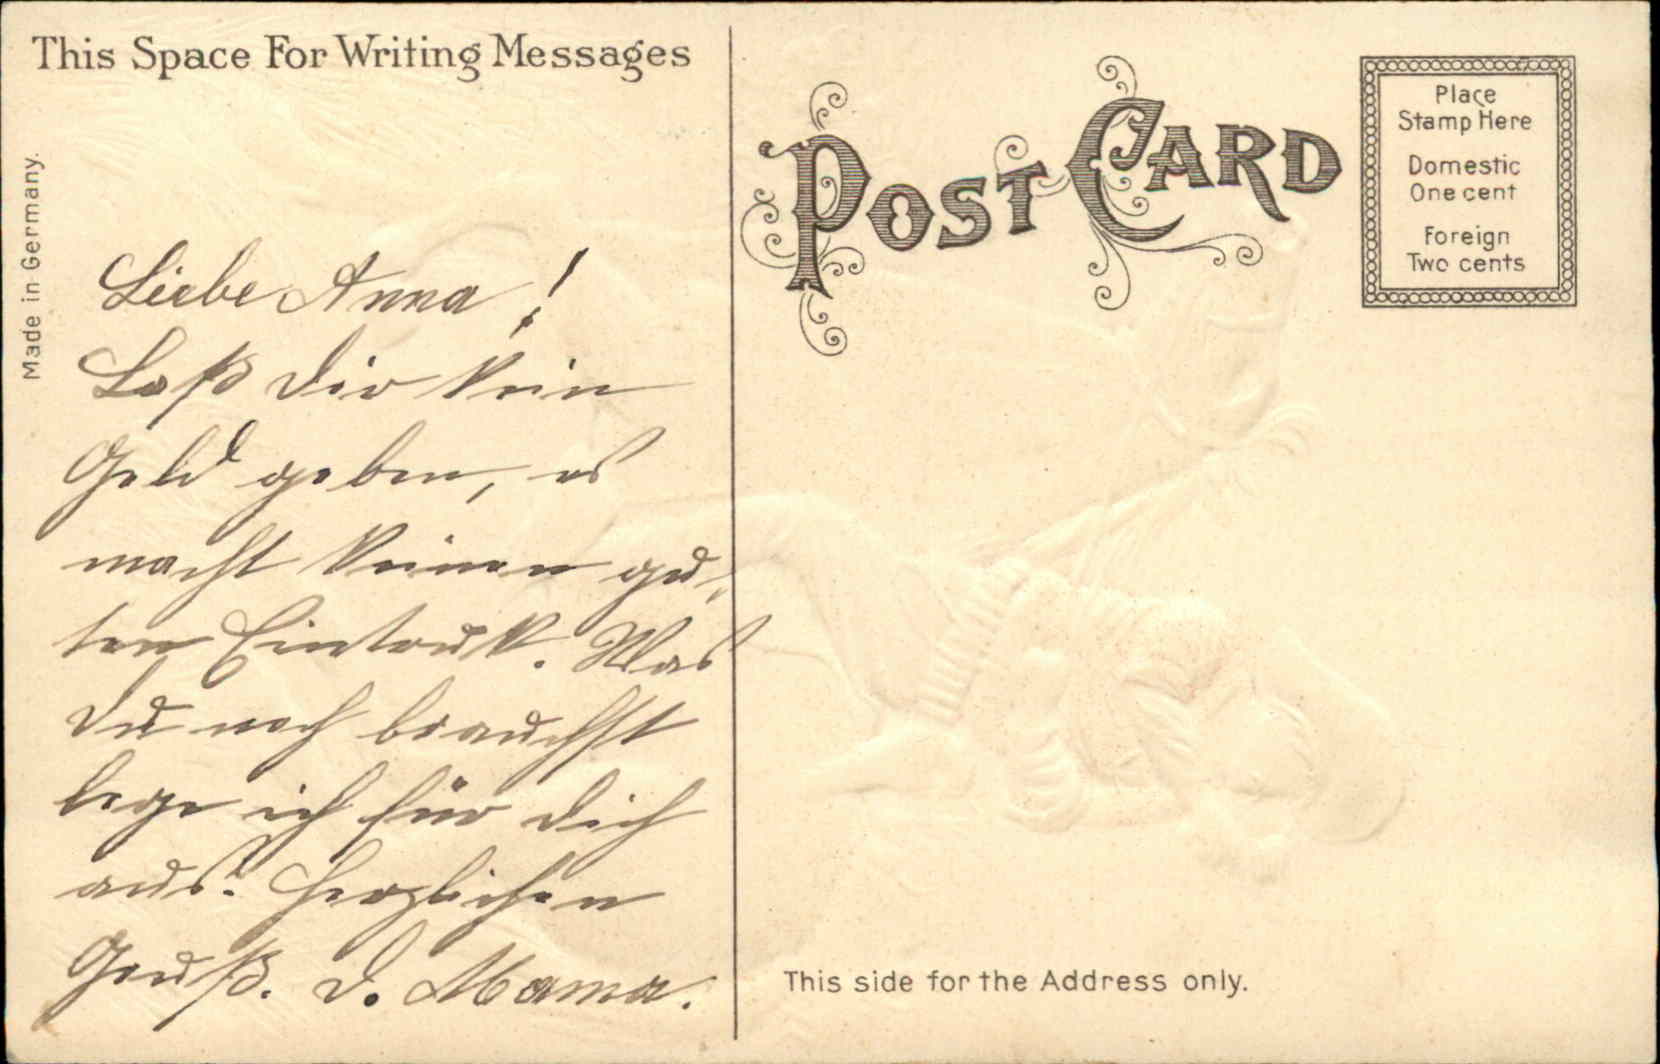 This Space For Writing Messages
Made in Germany.
Liebe Anna!
Laß dir kein
Geld geben, es
macht keinen gu-
ten Eintruk. Was
du noch brauchst
lege ich für dich
aus. Herzlichen
Gruß. d. Mama.
POST CARD
Place
Stamp Here
Domestic
One cent
Foreign
Two cents
This side for the Address only.